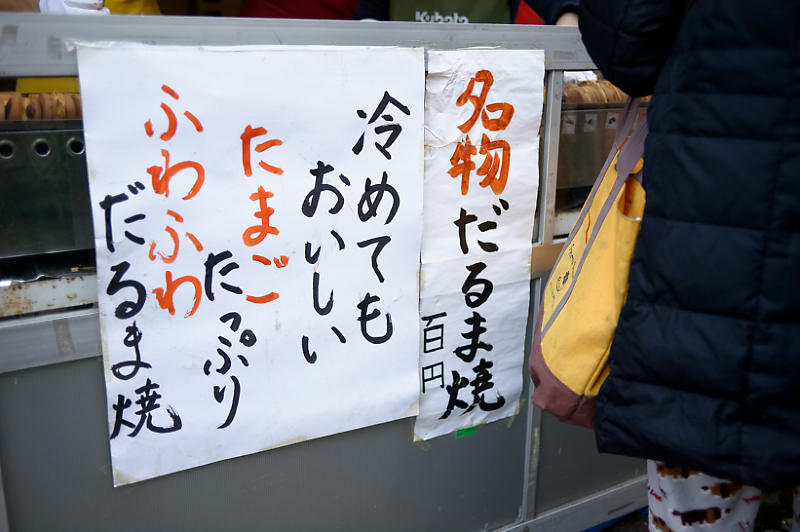 Kubota
名物だるま焼
百円
冷めても
おいしい
たまご
たっぷり
ふわふわ
だるま焼